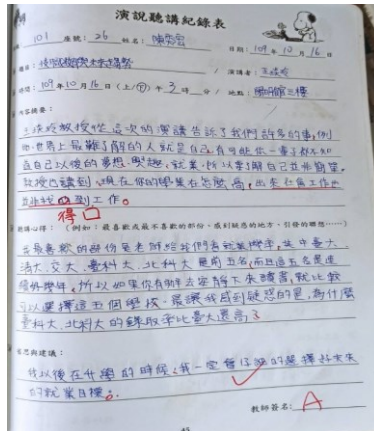 演說聽講紀錄表
101 座號：26 姓名：陳
日期：109年10月16日
題目： / 演講者：
時間：109年10月16日(上/下)午3時 分 / 地點：
內容摘要：
教授從這次的演講告訴了我們許多的事，例
如，世界上最難了解的人就是自己，有可能你一輩子都不知
道自己以後的夢想、興趣、就業，所以要了解自己並非簡單。
教授也講到，現在你的學業在怎麼高，出來社會工作也
並非找的到工作。
得
聽講心得：（例如：最喜歡或最不喜歡的部份、感到疑惑的地方、引發的聯想……）
我最喜歡的部份是老師給我們看就業機率，其中臺大、
清大、交大、臺科大、北科大是前五名，而且這五名是連
續好幾年，所以如果你有辦法去安靜下來讀書，就比較
可以選擇這五個學校，最讓我感到疑惑的是，為什麼
臺科大、北科大的錄取率比臺大還高？
省思與建議：
我以後在升學的時候，我一定會仔細的選擇好未來
的就業目標。
教師簽名： A